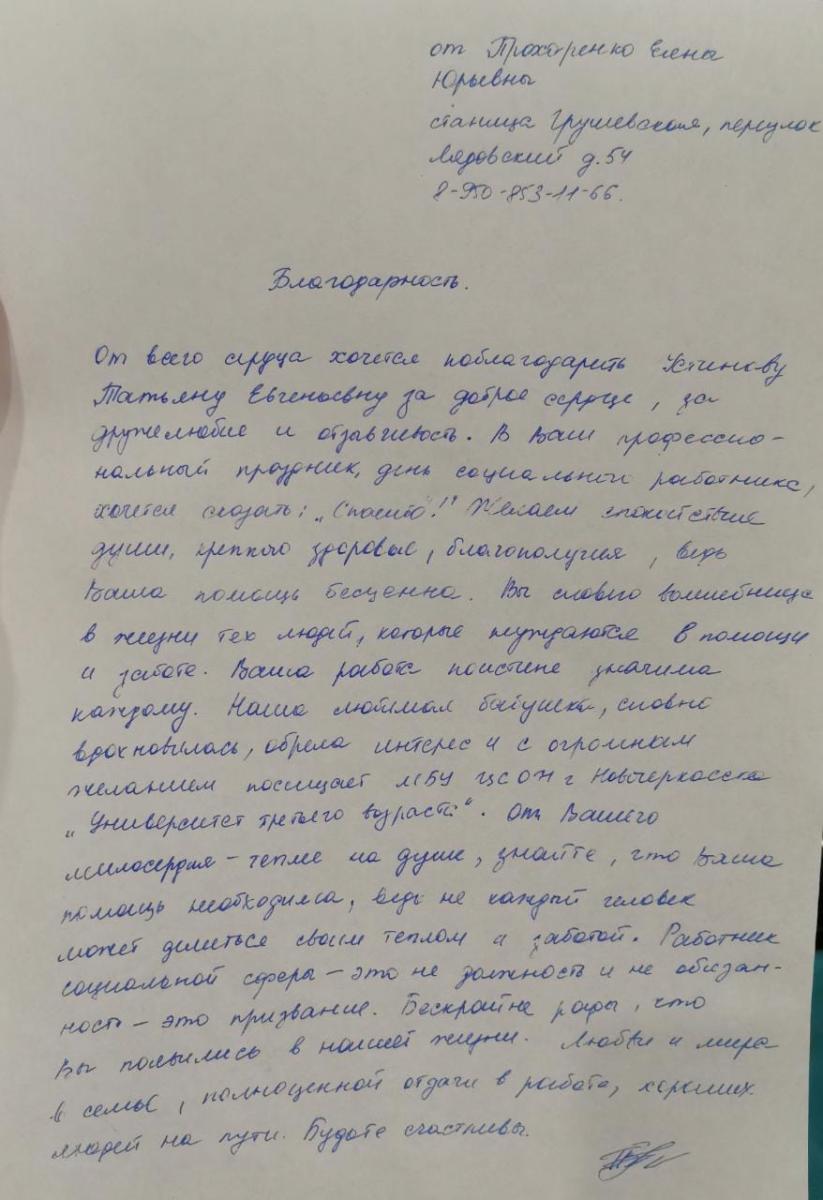 от Прохоренко Елены
Юрьевны
станица Грушевская, переулок
Лядовский д.54
8-950-853-11-66.
Благодарность.
От всего сердца хочется поблагодарить Устинову
Татьяну Евгеньевну за доброе сердце, за
дружелюбие и отзывчивость. В Ваш профессио-
нальный праздник, день социального работника,
хочется сказать: „Спасибо!" Желаем спокойствия
души, крепкого здоровья, благополучия, ведь
Ваша помощь бесценна. Вы словно волшебница
в жизни тех людей, которые нуждаются в помощи
и заботе. Ваша работа поистине значима
каждому. Наша любимая бабушка, словно
вдохновилась, обрела интерес и с огромным
желанием посещает МБУ ЦСОН г Новочеркасска
„Университет третьего возраста". От Вашего
милосердия - теплее на душе, знайте, что Ваша
помощь необходима, ведь не каждый человек
может делиться своим теплом и заботой. Работник
социальной сферы - это не должность и не обязан-
ность - это призвание. Бескрайне рады, что
Вы появились в нашей жизни. Любви и мира
в семье, полноценной отдачи в работе, хороших
людей на пути. Будьте счастливы.